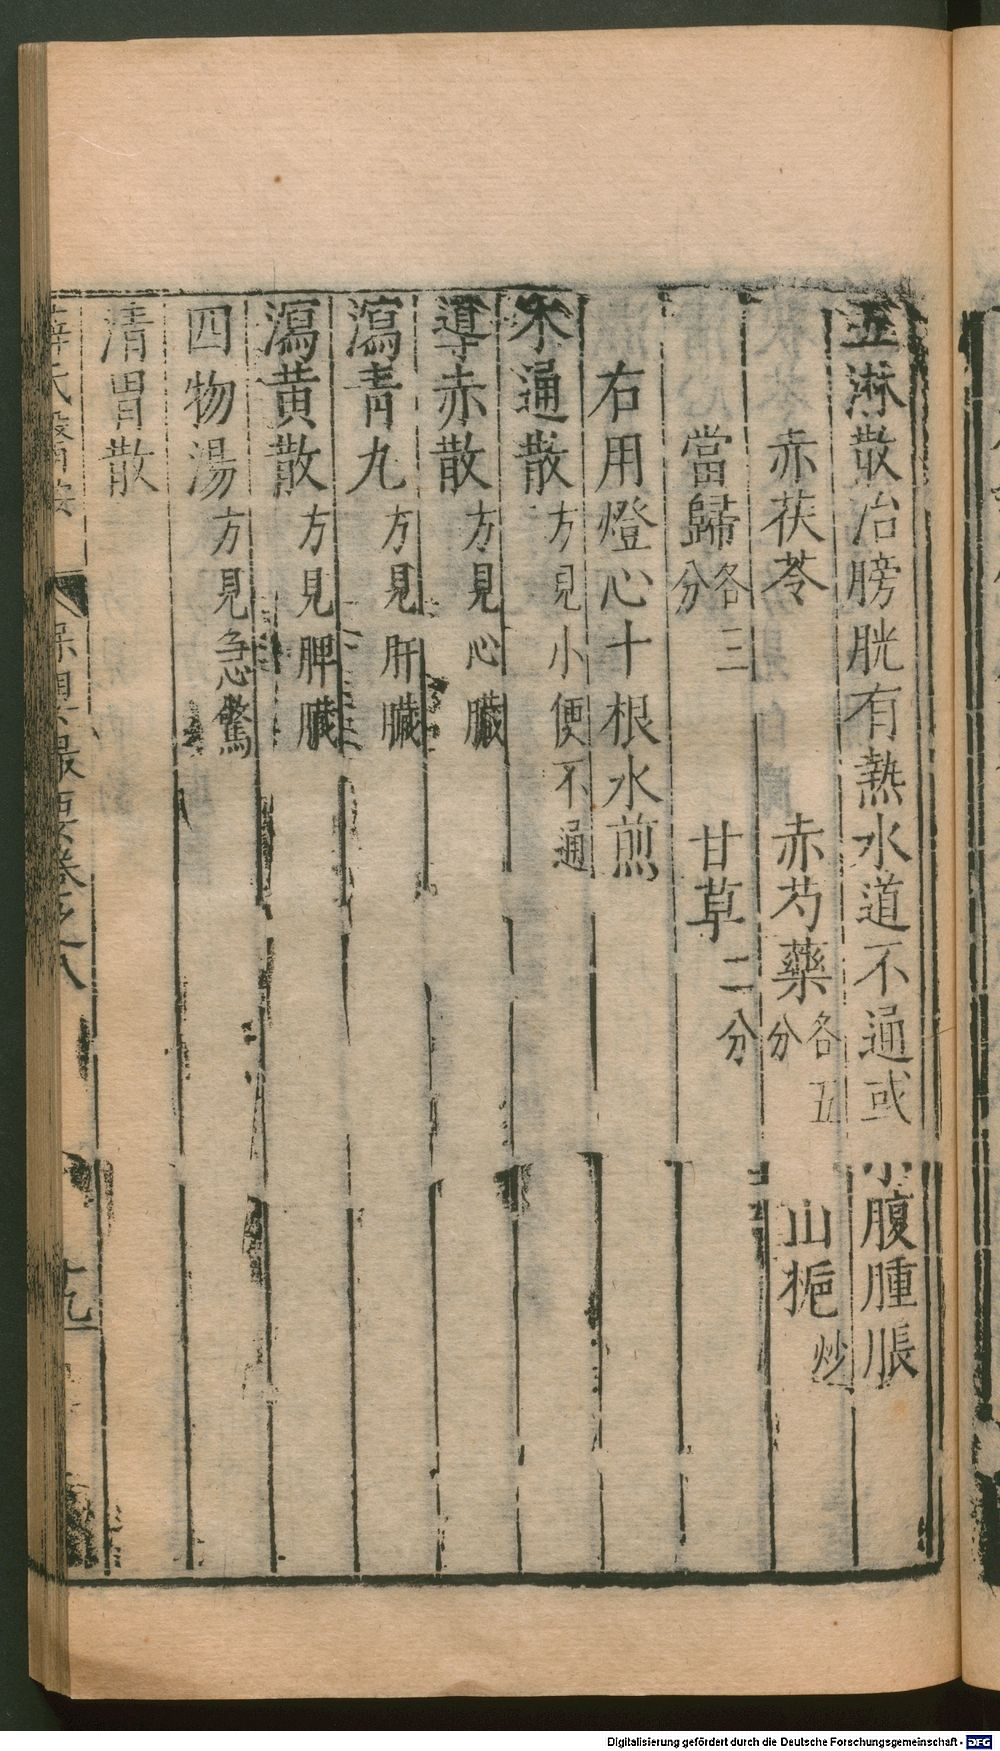 五淋散治膀胱有熱水道不通或小腹腫脹
赤茯苓 赤芍藥各五分 山梔炒
當歸各三分 甘草二分
右用燈心十根水煎
木通散方見小便不通
導赤散方見心臟
瀉青丸方見肝臟
瀉黄散方見脾臟
四物湯方見急驚
清胃散
薛氏醫按 保嬰最要卷之八 十九
Digitalisierung gefördert durch die Deutsche Forschungsgemeinschaft - DFG